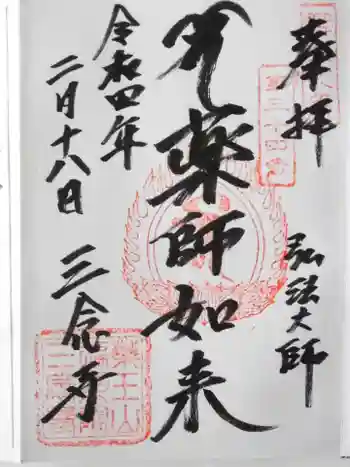 奉拝
弘法大師
薬師如来
令和四年
二月十八日
三念寺